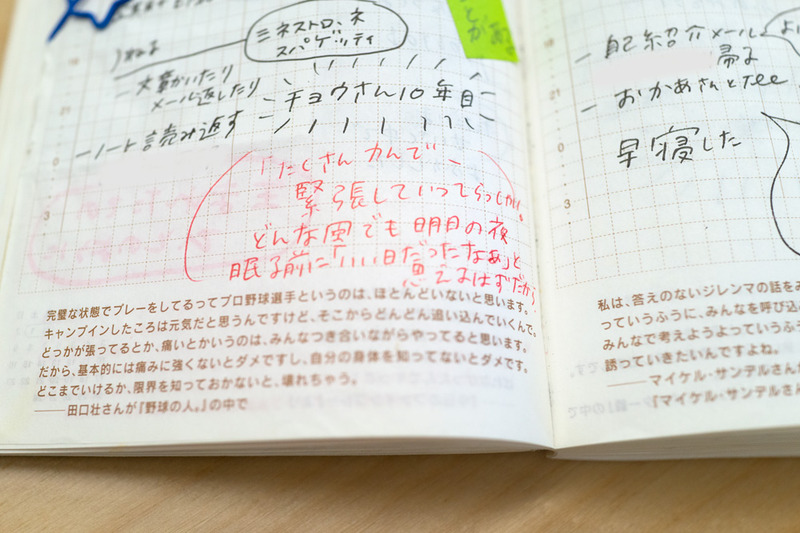 ミネストローネ
スパゲッティ
メール返したり
チョウさん10年目
ノート読み返す
「たくさんカんで
緊張していってらっしゃい。
どんな風でも明日の夜
眠る前に「いい日だったなぁ」と
思えるはずだから
完璧な状態でプレーをしてるってプロ野球選手というのは、ほとんどいないと思います。
キャンプインしたころは元気だと思うんですけど、そこからどんどん追い込んでいくんで。
どっかが張ってるとか、痛いとかいうのは、みんなつき合いながらやってると思います。
だから、基本的には痛みに強くないとダメですし、自分の身体を知ってないとダメです。
どこまでいけるか、限界を知っておかないと、壊れちゃう。
――田口壮さんが『野球の人。』の中で
21
0
3
自己紹介メール
帰る
おかあさんとtel
早寝した
21
0
3
私は、答えのないジレンマの話をみ
っていうふうに、みんなを呼び込
みんなで考えようよっていうふう
誘っていきたいんですよね。
――マイケル・サンデルさんが
『マイケル・サンデルさ